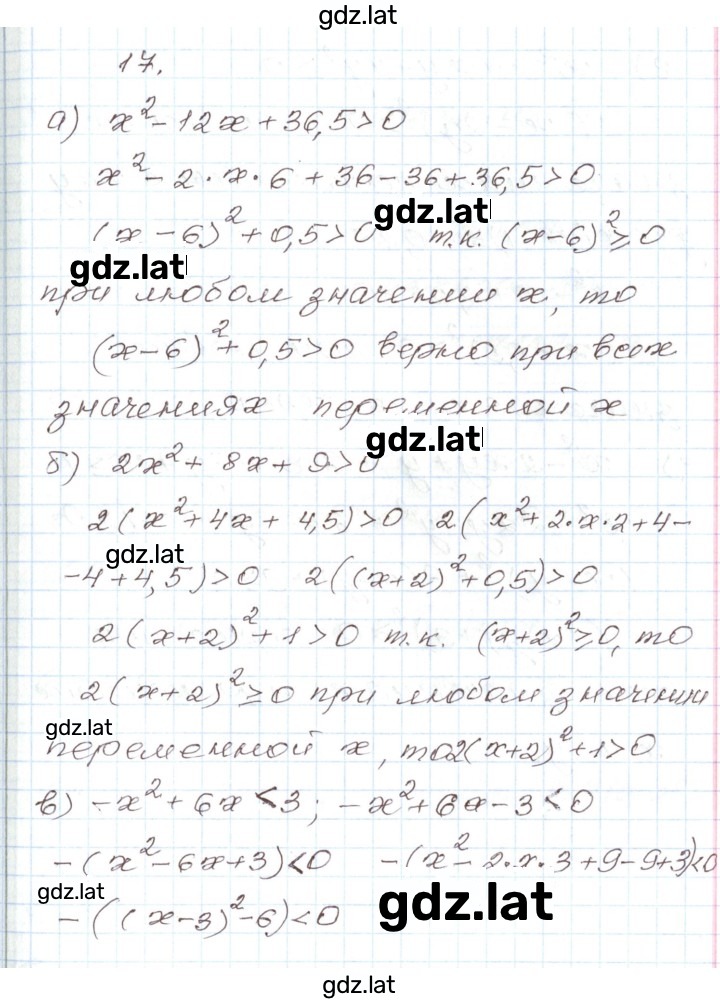 gdz.lat
17.
а) x² - 12x + 36,5 > 0
x² - 2 · x · 6 + 36 - 36 + 36,5 > 0
gdz.lat
(x - 6)² + 0,5 > 0 т.к. (x - 6)² ≥ 0
gdz.lat
при любом значении x, то
(x - 6)² + 0,5 > 0 верно при всех
значениях переменной x
gdz.lat
б) 2x² + 8x + 9 > 0
2(x² + 4x + 4,5) > 0 2(x² + 2·x·2 + 4 -
gdz.lat
- 4 + 4,5) > 0 2((x+2)² + 0,5) > 0
2(x+2)² + 1 > 0 т.к. (x+2)² ≥ 0, то
2(x+2)² ≥ 0 при любом значении
gdz.lat
переменной x, то 2(x+2)² + 1 > 0
в) -x² + 6x < 3; -x² + 6x - 3 < 0
-(x² - 6x + 3) < 0 -(x² - 2·x·3 + 9 - 9 + 3) < 0
gdz.lat
-((x - 3)² - 6) < 0
gdz.lat
gdz.lat